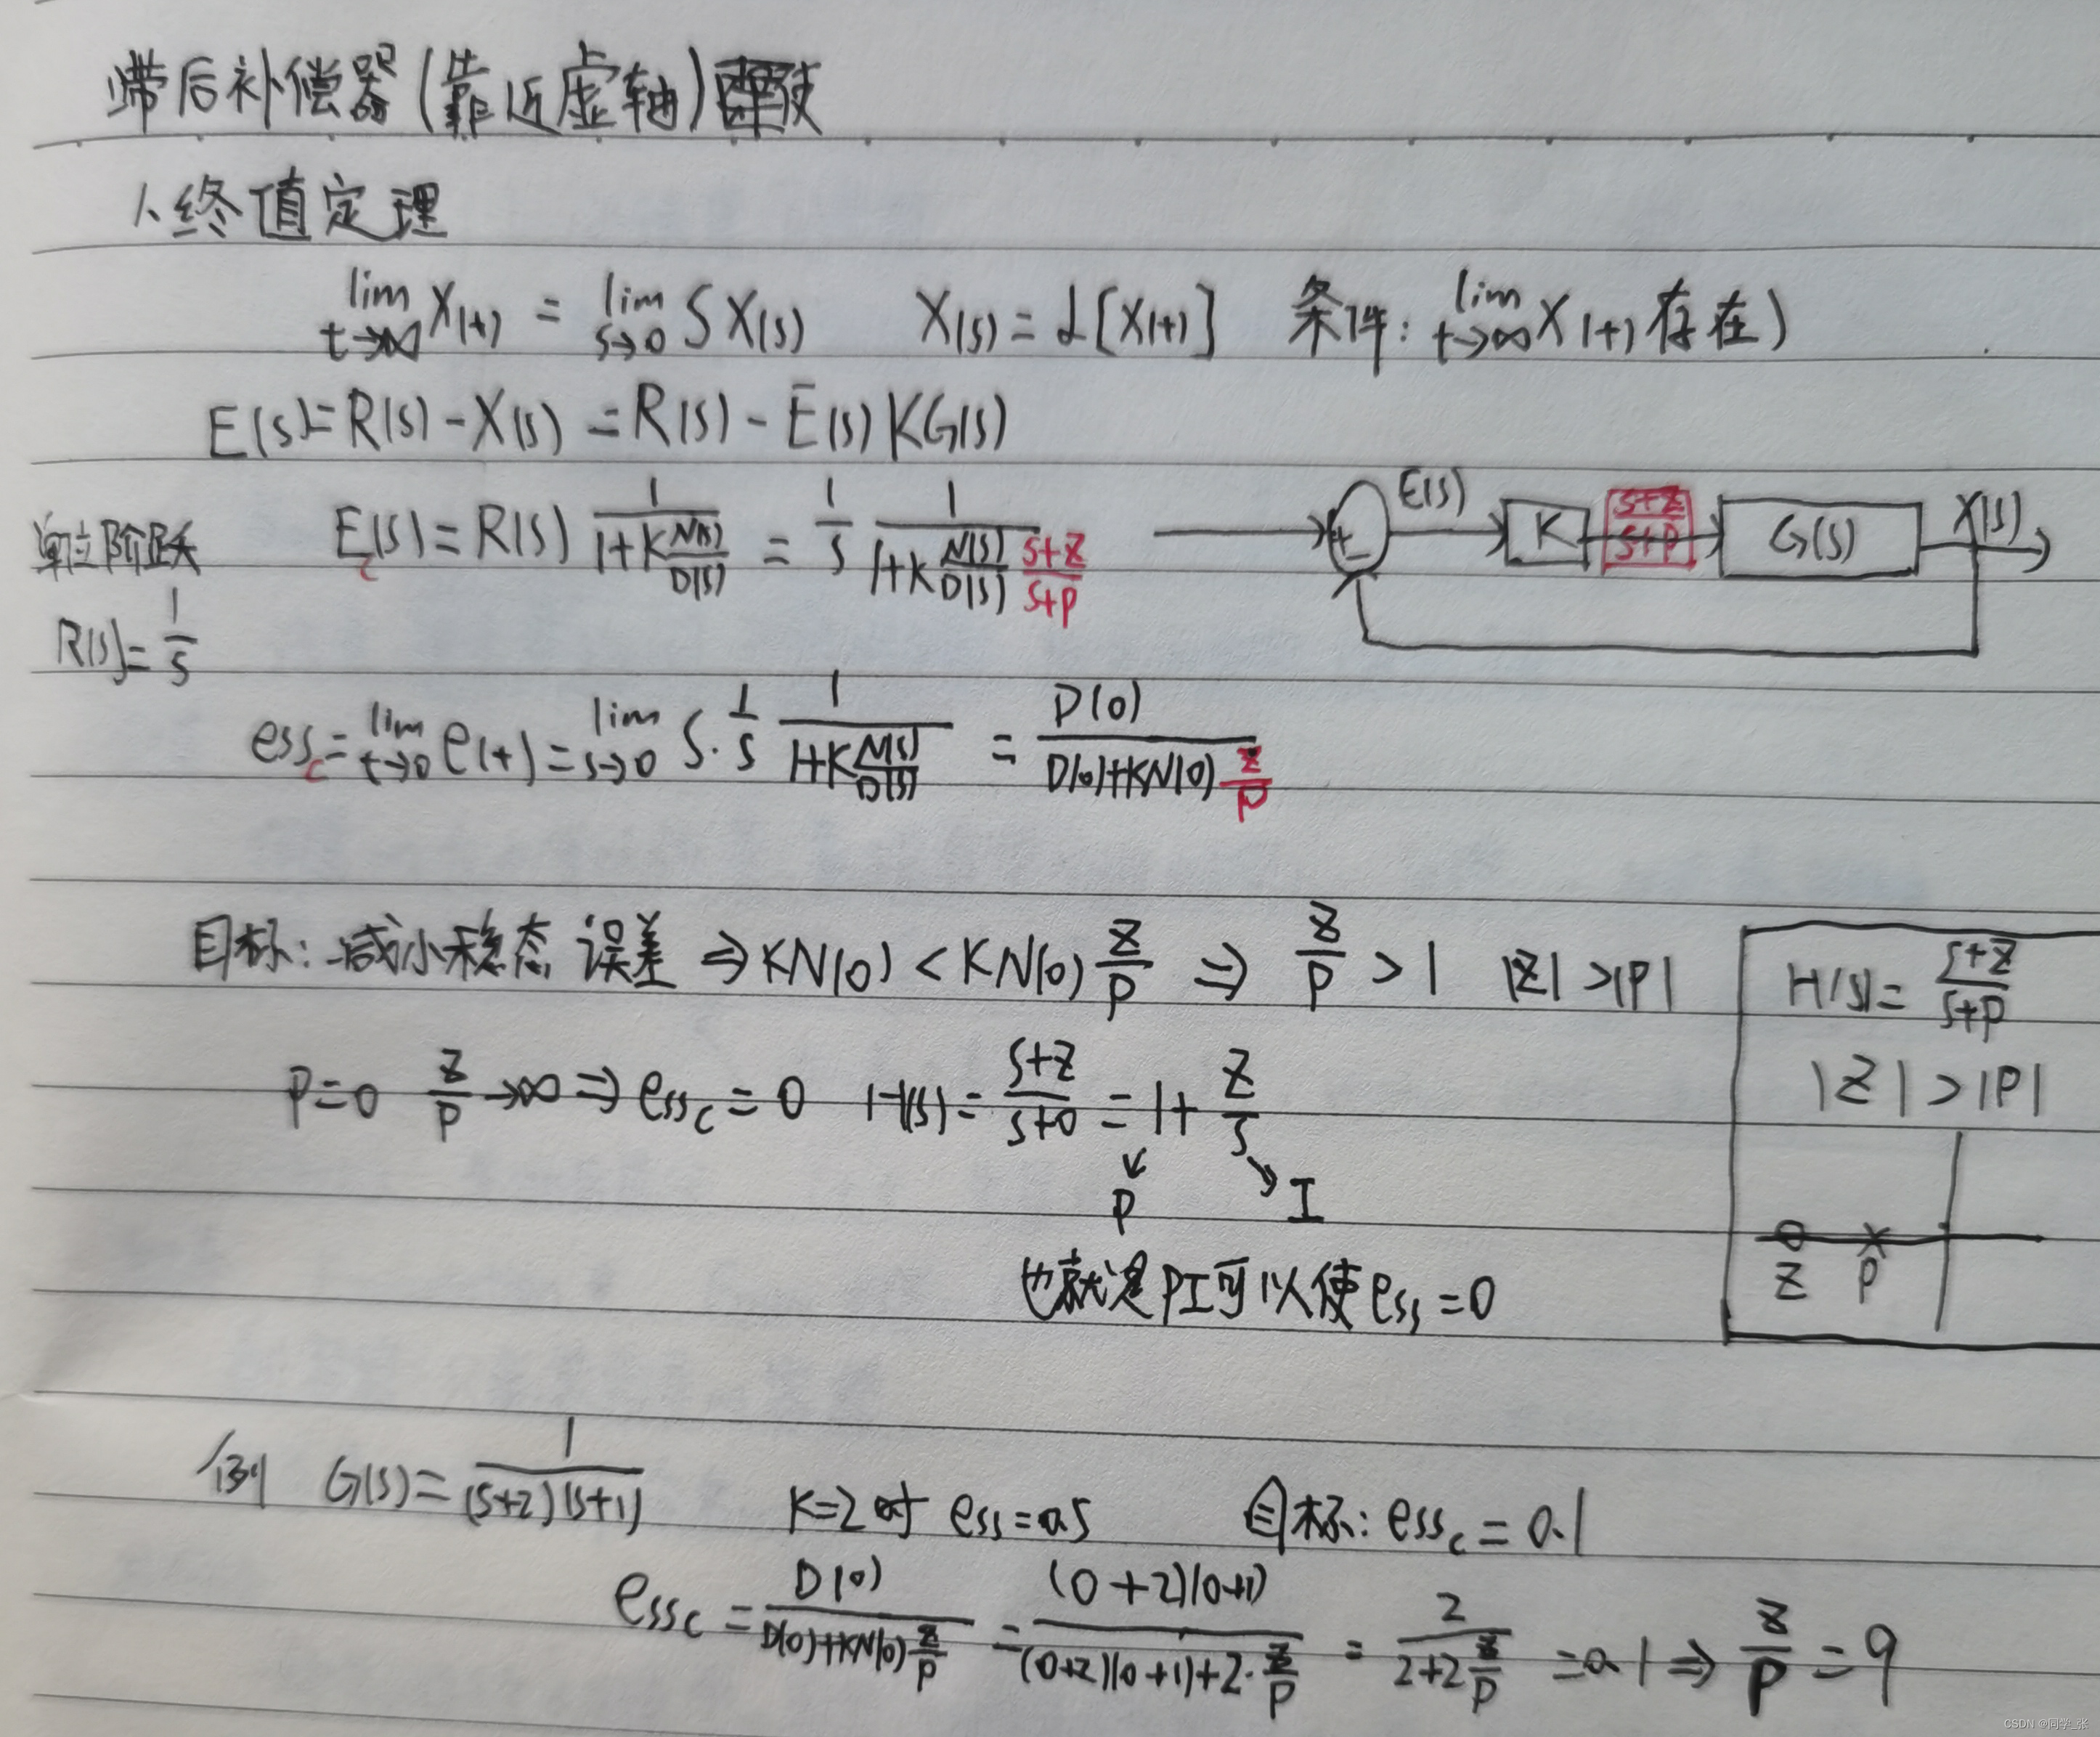 滞后补偿器(靠近虚轴)使
1、终值定理
lim t→∞ X(t) = lim s→0 S X(s)  X(s) = L[X(t)]  条件: lim t→∞ X(t) 存在)
E(s) = R(s) - X(s) = R(s) - E(s) KG(s)
单位阶跃 R(s) = 1/s
Ec(s) = R(s) 1/(1+K N(s)/D(s)) = 1/s · 1/(1+K N(s)/D(s) · (s+z)/(s+p))
E(s) K (s+z)/(s+p) G(s) X(s)
+ -
essc = lim t→0 e(t) = lim s→0 S · 1/s · 1/(1+K N(s)/D(s)) = D(0)/(D(0)+KN(0) z/p)
目标: 减小稳态误差 ⇒ KN(0) < KN(0) z/p ⇒ z/p > 1  |z| > |p|
H(s) = (s+z)/(s+p)
|z| > |p|
z p
p=0  z/p → ∞ ⇒ essc = 0  H(s) = (s+z)/(s+0) = 1 + z/s
P I
也就是PI可以使ess = 0
例 G(s) = 1/((s+2)(s+1))  K=2时 ess = 0.5  目标: essc = 0.1
essc = D(0)/(D(0)+KN(0) z/p) = (0+2)(0+1)/((0+2)(0+1)+2· z/p) = 2/(2+2 z/p) = 0.1 ⇒ z/p = 9
CSDN @同学_张